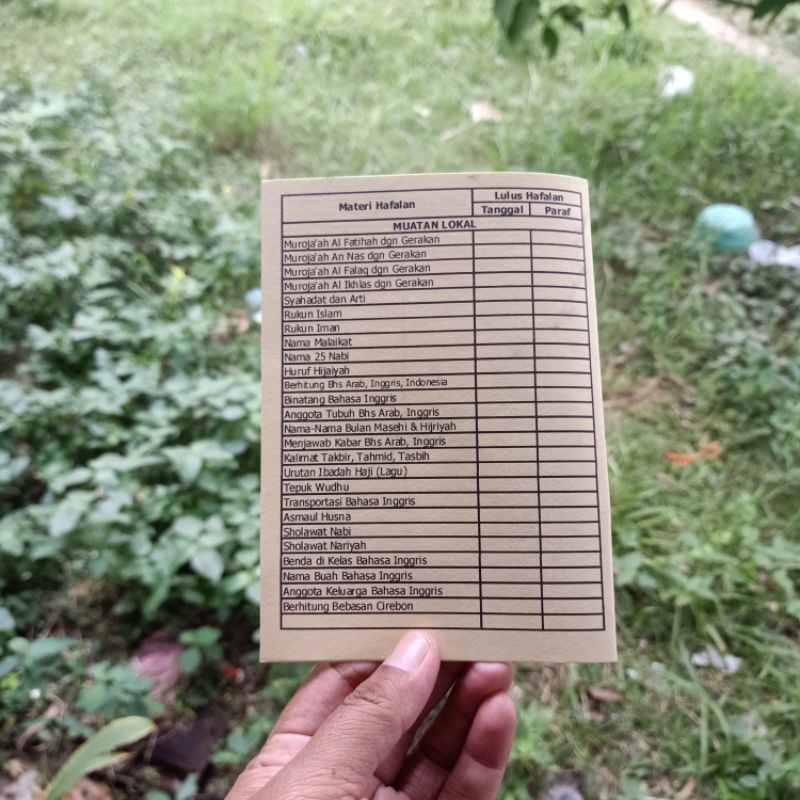 Materi Hafalan
Lulus Hafalan
Tanggal Paraf
MUATAN LOKAL
Muroja'ah Al Fatihah dgn Gerakan
Muroja'ah An Nas dgn Gerakan
Muroja'ah Al Falaq dgn Gerakan
Muroja'ah Al Ikhlas dgn Gerakan
Syahadat dan Arti
Rukun Islam
Rukun Iman
Nama Malaikat
Nama 25 Nabi
Huruf Hijaiyah
Berhitung Bhs Arab, Inggris, Indonesia
Binatang Bahasa Inggris
Anggota Tubuh Bhs Arab, Inggris
Nama-Nama Bulan Masehi & Hijriyah
Menjawab Kabar Bhs Arab, Inggris
Kalimat Takbir, Tahmid, Tasbih
Urutan Ibadah Haji (Lagu)
Tepuk Wudhu
Transportasi Bahasa Inggris
Asmaul Husna
Sholawat Nabi
Sholawat Nariyah
Benda di Kelas Bahasa Inggris
Nama Buah Bahasa Inggris
Anggota Keluarga Bahasa Inggris
Berhitung Bebasan Cirebon